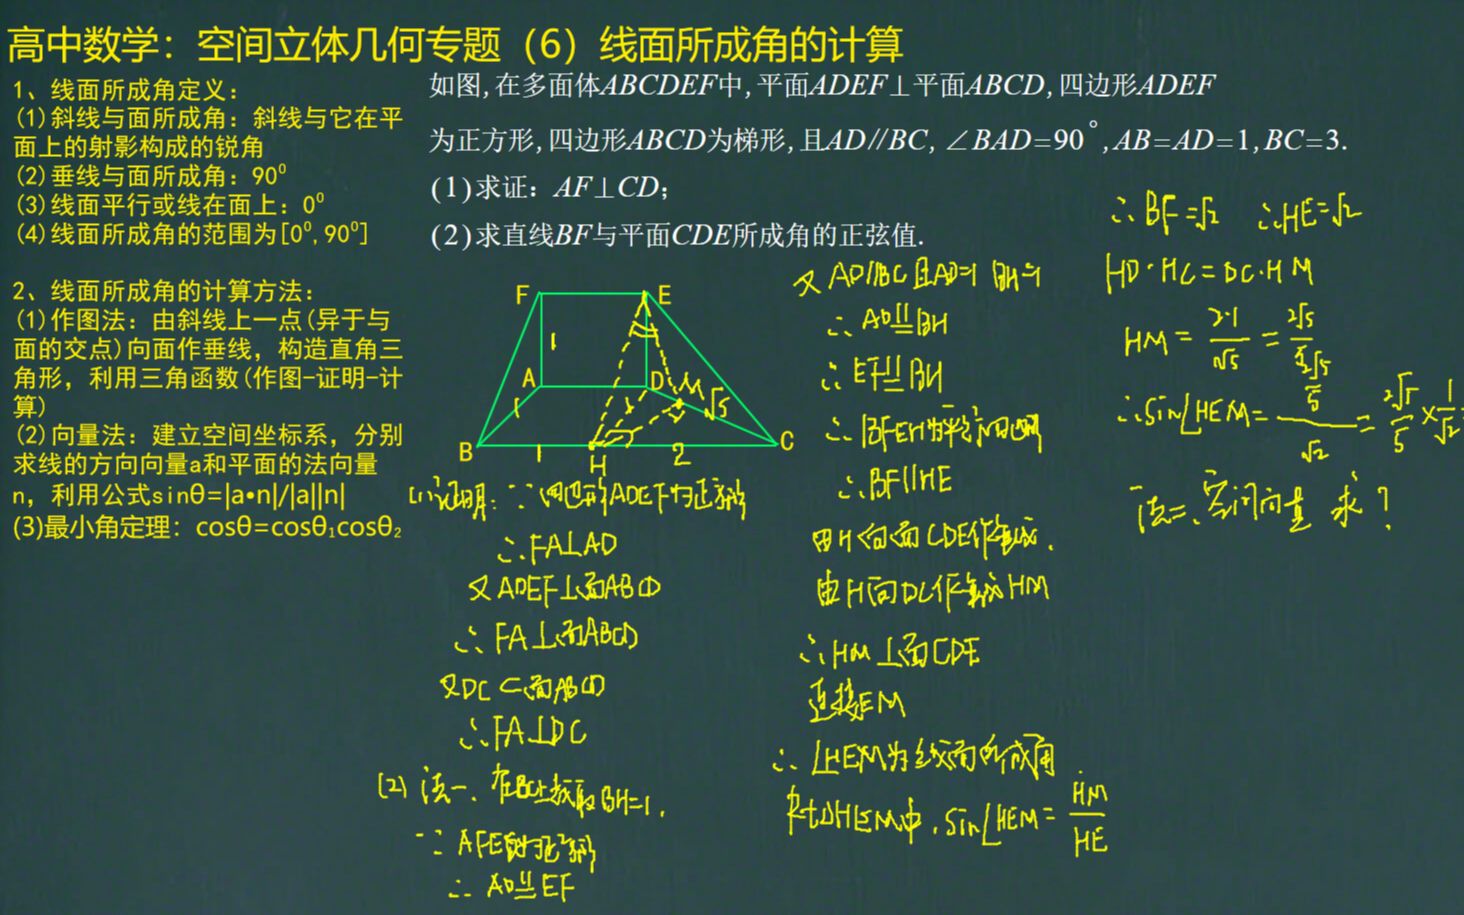 高中数学：空间立体几何专题（6）线面所成角的计算
1、线面所成角定义：
(1)斜线与面所成角：斜线与它在平
面上的射影构成的锐角
(2)垂线与面所成角：90⁰
(3)线面平行或线在面上：0⁰
(4)线面所成角的范围为[0⁰,90⁰]
2、线面所成角的计算方法：
(1)作图法：由斜线上一点(异于与
面的交点)向面作垂线，构造直角三
角形，利用三角函数(作图-证明-计
算)
(2)向量法：建立空间坐标系，分别
求线的方向向量a和平面的法向量
n，利用公式sinθ=|a•n|/|a||n|
(3)最小角定理：cosθ=cosθ₁cosθ₂
如图,在多面体ABCDEF中,平面ADEF⊥平面ABCD,四边形ADEF
为正方形,四边形ABCD为梯形,且AD∥BC,∠BAD=90°,AB=AD=1,BC=3.
(1)求证：AF⊥CD;
(2)求直线BF与平面CDE所成角的正弦值.
F E
1
A D M √5
1 1
B 1 H 2 C
(1)证明：∵四边形ADEF为正方形
∴FA⊥AD
又ADEF⊥面ABCD
∴FA⊥面ABCD
又DC⊂面ABCD
∴FA⊥DC
(2)法一、在BC上取BH=1,
∵AFED为正方形
∴AD∥=EF
又AD∥BC且AD=1 BH=1
∴AD∥=BH
∴EF∥=BH
∴BFEH为平行四边形
∴BF∥HE
由H向面CDE作垂线.
由H向DC作垂线HM
∴HM⊥面CDE
连接EM
∴∠HEM为线面所成角
Rt△HEM中,sin∠HEM=HM/HE
∴BF=√2 ∴HE=√2
HD·HC=DC·HM
HM=2·1/√5=2√5/5
∴sin∠HEM=(2√5/5)/√2=2√5/5×1/√2
法二、空间向量 求？